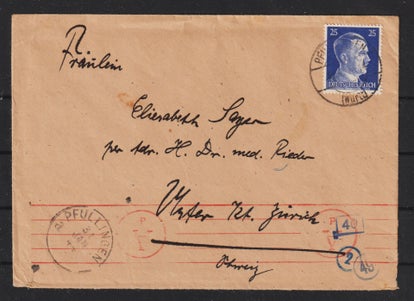 25 25
DEUTSCHES REICH
PFU
(WÜRTT)
Fräulein
Elisabeth
per Adr. H. Dr. med. Rieder
Kt. Zürich
Schweiz
PFULLINGEN
40
2
40